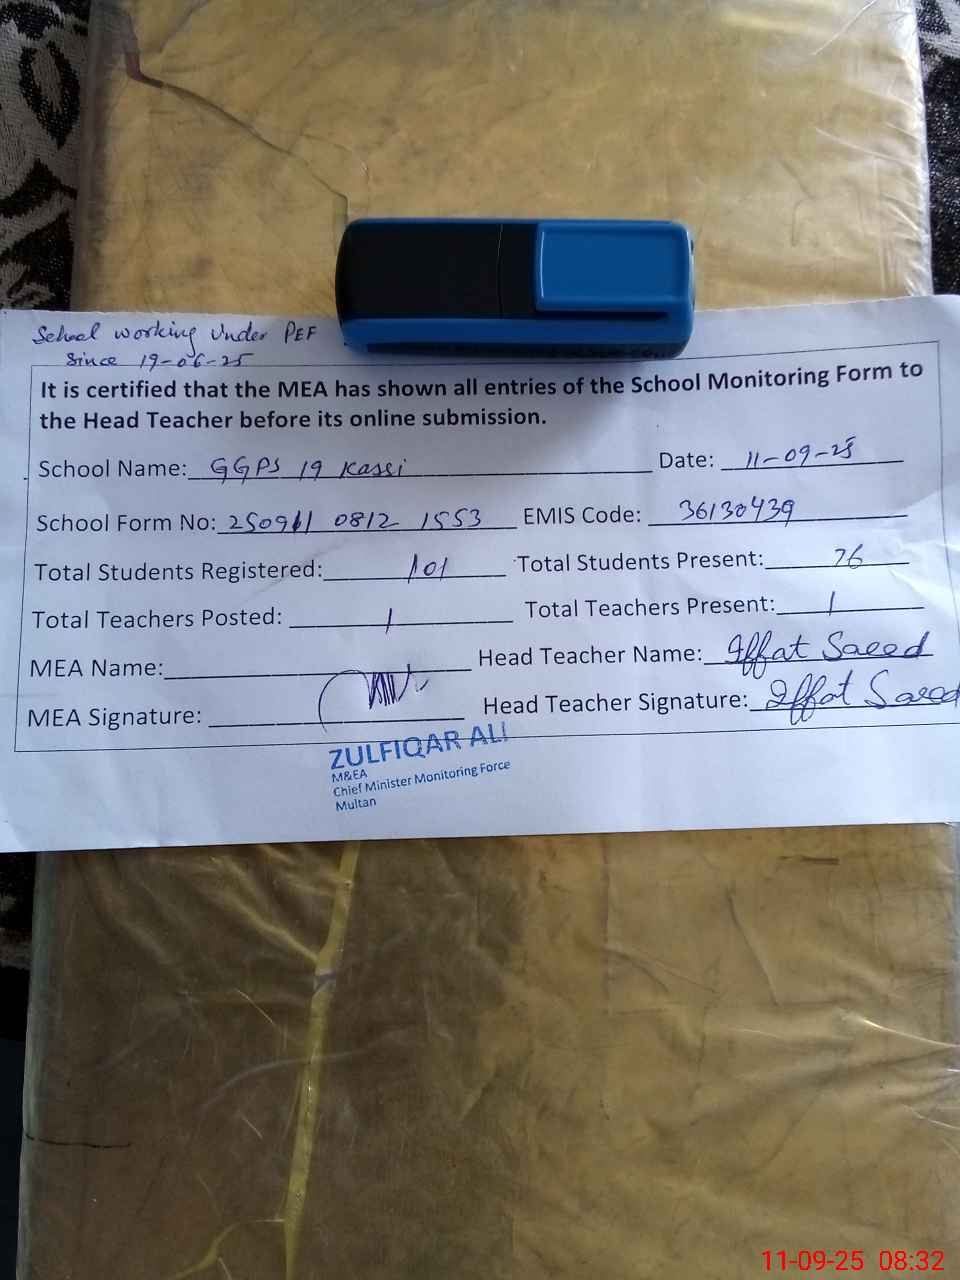 School working Under PEF
Since 19-06-25
It is certified that the MEA has shown all entries of the School Monitoring Form to
the Head Teacher before its online submission.
School Name: GGPS 19 Kassi Date: 11-09-25
School Form No: 250911 0812 1553 EMIS Code: 36130439
Total Students Registered: 101 Total Students Present: 76
Total Teachers Posted: 1 Total Teachers Present: 1
MEA Name: Head Teacher Name: Iffat Saeed
MEA Signature: Head Teacher Signature: Iffat Saeed
ZULFIQAR ALI
M&EA
Chief Minister Monitoring Force
Multan
11-09-25 08:32